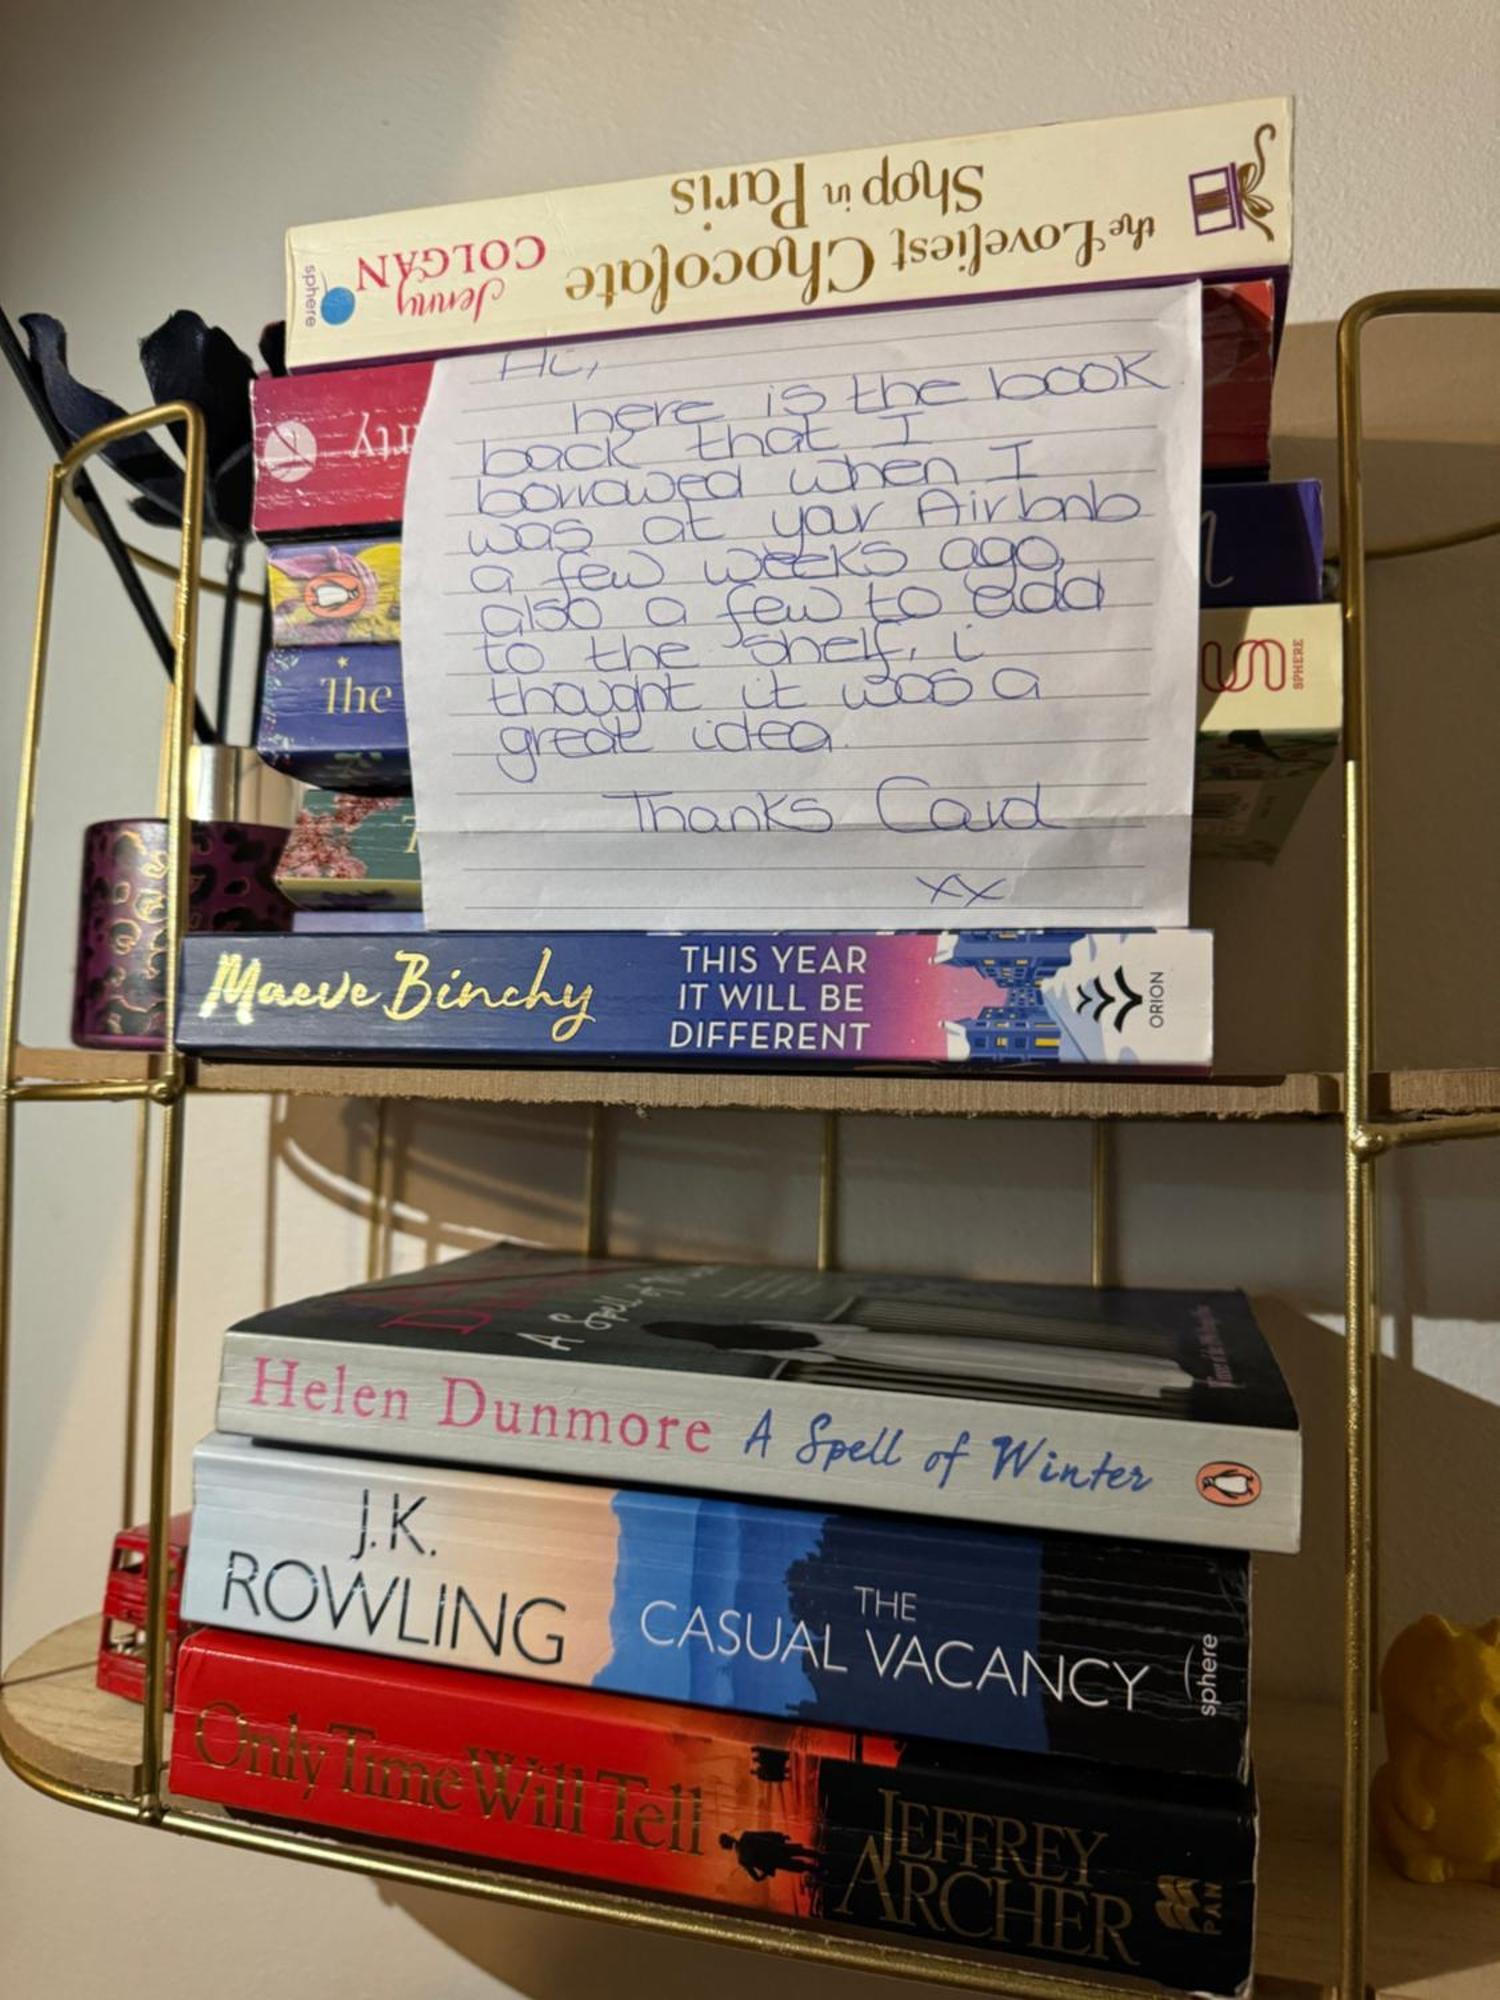 the Loveliest Chocolate
Shop in Paris
Jenny
COLGAN
sphere
Hi,
here is the book
back that I
borrowed when I
was at your Airbnb
a few weeks ago,
also a few to add
to the shelf, i
thought it was a
great idea.
Thanks Carol
xx
The
SPHERE
Maeve Binchy
THIS YEAR
IT WILL BE
DIFFERENT
ORION
A Spell of
Helen Dunmore A Spell of Winter
J.K.
ROWLING
THE
CASUAL VACANCY
sphere
Only Time Will Tell
JEFFREY
ARCHER
PAN